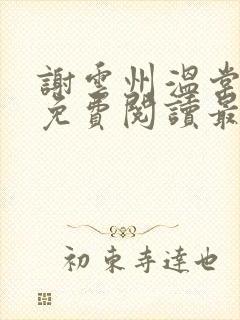 謝雲州溫棠
免費閱讀最
初東寺達也